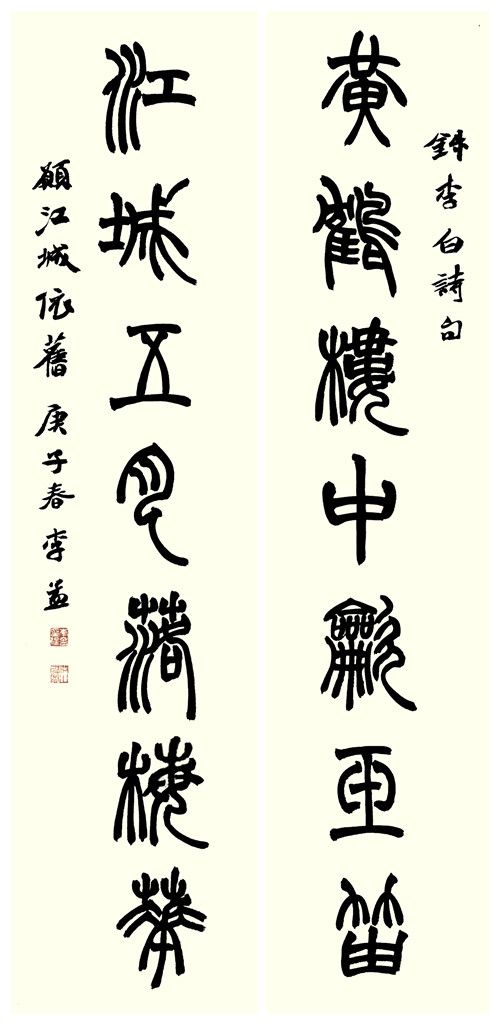 録李白詩句
黃鶴樓中龡玉笛
江城五月落梅華
願江城依舊 庚子春 李益